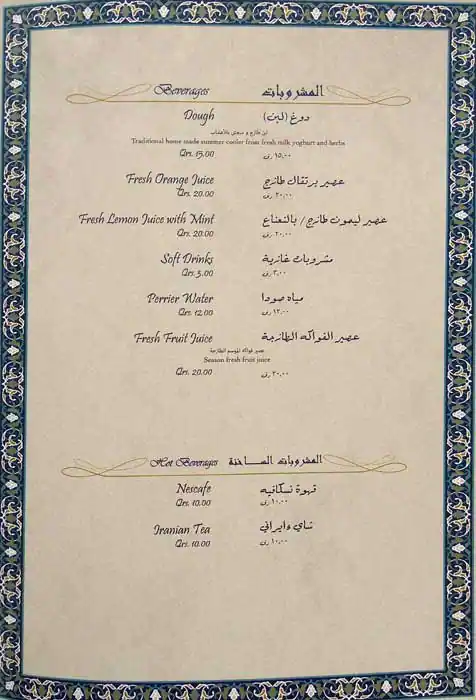 Beverages المشروبات
Dough دوغ (لبن)
لبن طازج و منعش بالاعشاب
Traditional home made summer cooler from fresh milk yoghurt and herbs
Qrs. 15.00 ١٥,٠٠ رق
Fresh Orange Juice عصير برتقال طازج
Qrs. 20.00 ٢٠,٠٠ رق
Fresh Lemon Juice with Mint عصير ليمون طازج / بالنعناع
Qrs. 20.00 ٢٠,٠٠ رق
Soft Drinks مشروبات غازية
Qrs. 3.00 ٣,٠٠ رق
Perrier Water مياه صودا
Qrs. 12.00 ١٢,٠٠ رق
Fresh Fruit Juice عصير الفواكه الطازجة
عصير فواكه الموسم الطازجة
Season fresh fruit juice
Qrs. 20.00 ٢٠,٠٠ رق
Hot Beverages المشروبات الساخنة
Nescafe قهوة نسكافيه
Qrs. 10.00 ١٠,٠٠ رق
Iranian Tea شاي إيراني
Qrs. 10.00 ١٠,٠٠ رق